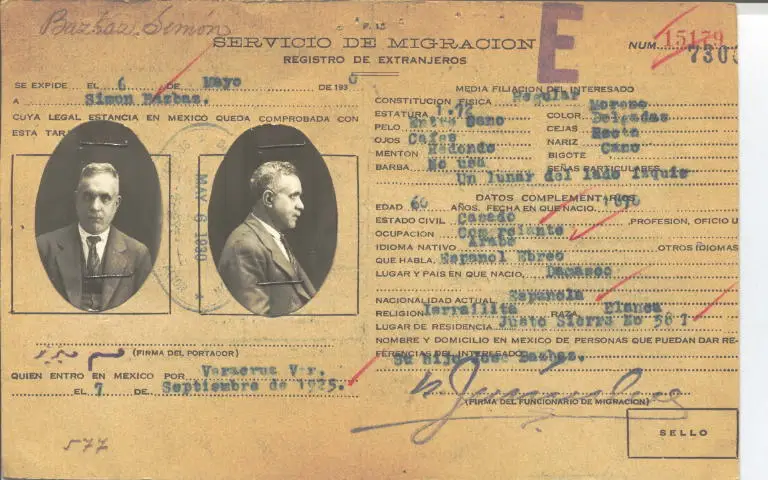 Bazbaz, Simón
F. 13
SERVICIO DE MIGRACION
REGISTRO DE EXTRANJEROS
E
NUM. 15179
730
SE EXPIDE EL 6 DE Mayo DE 1930
A Simon Bazbaz.
CUYA LEGAL ESTANCIA EN MEXICO QUEDA COMPROBADA CON
ESTA TAR
MAY 6 1930
(FIRMA DEL PORTADOR)
QUIEN ENTRO EN MEXICO POR Veracruz Ver.
EL 7 DE Septiembre de 1925.
577
MEDIA FILIACION DEL INTERESADO
CONSTITUCION FISICA Regular
ESTATURA COLOR Moreno
PELO Entre Cano CEJAS Delgadas
OJOS Cafes NARIZ Recta
MENTON Redondo BIGOTE Cano
BARBA No usa SEÑAS PARTICULARES
Un lunar del lado Izquie
DATOS COMPLEMENTARIOS
EDAD 60 AÑOS. FECHA EN QUE NACIO. 1870
ESTADO CIVIL Casado PROFESION, OFICIO U
OCUPACION Comerciante
IDIOMA NATIVO Arabe OTROS IDIOMAS
QUE HABLA. Español Ebreo
LUGAR Y PAIS EN QUE NACIO, Damasco
NACIONALIDAD ACTUAL Española
RELIGION Isrrailita RAZA Blanca
LUGAR DE RESIDENCIA Justo Sierra No
NOMBRE Y DOMICILIO EN MEXICO DE PERSONAS QUE PUEDAN DAR RE-
FERENCIAS DEL INTERESADO
Su Hijo Jose Bazbaz.
(FIRMA DEL FUNCIONARIO DE MIGRACION)
SELLO